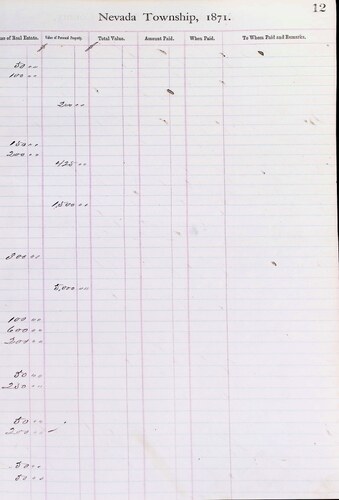 12
Nevada Township, 1871.
ue of Real Estate. Value of Personal Property. Total Value. Amount Paid. When Paid. To Whom Paid and Remarks.
50 00
100 00
200 00
150 00
200 00
425 00
1,500 00
800 00
5,000 00
100 00
600 00
200 00
50 00
250 00
50 00
200 00
50 00
50 00